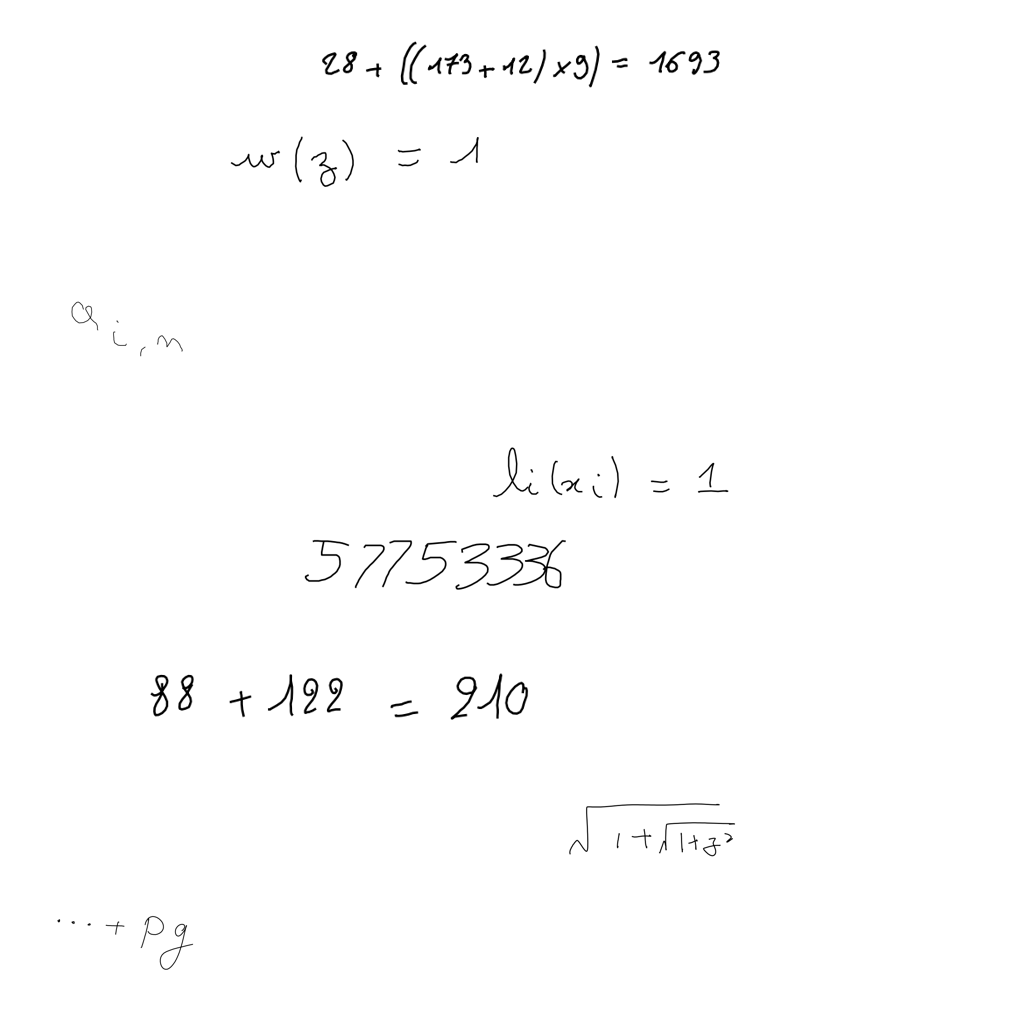 28 + ((173 + 12) × 9) = 1693
w(z) = 1
a_{i,n}
l_i(x_i) = 1
57753336
88 + 122 = 210
\sqrt{1+\sqrt{1+z^2}}
... + p_g